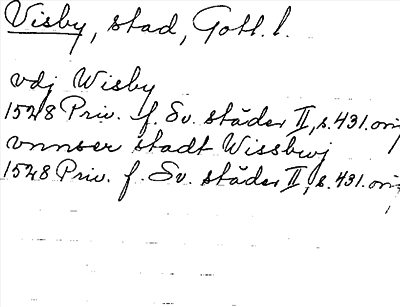 Visby, stad, Gotl. l.
vdj Wisby
1528 Priv. f. Sv. städer II, s. 431. orig
vnnser stadt Wissbwj
1528 Priv. f. Sv. städer II, s. 431. orig